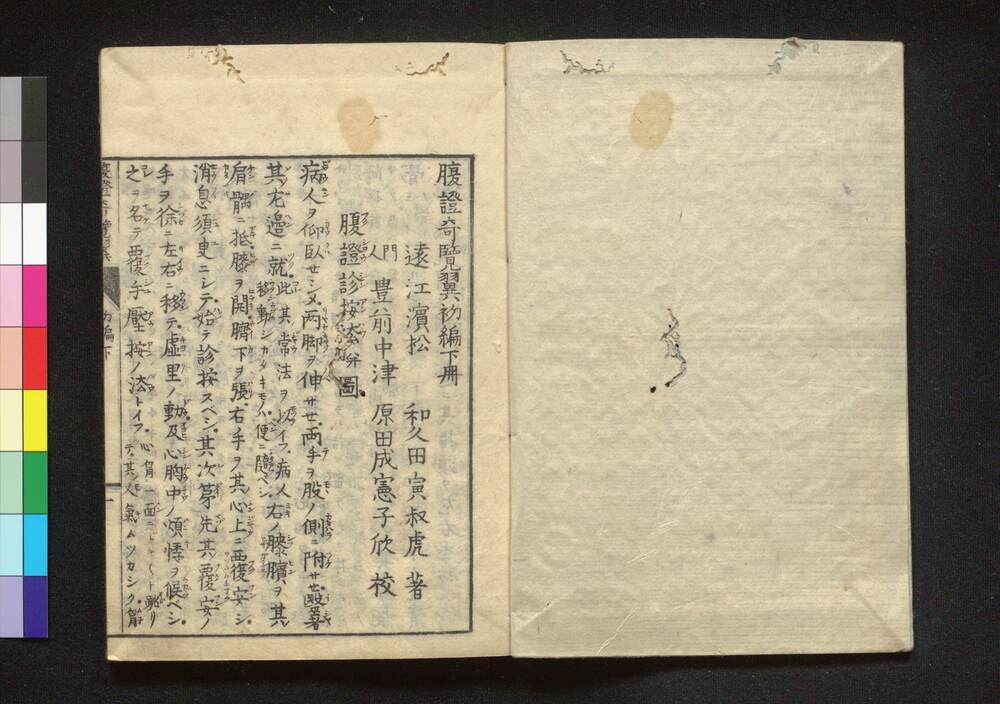 腹證奇覽翼初編下冊
遠江濱松 和久田寅叔虎 著
門人 豊前中津 原田成憲子欣 校
腹證診按法并圖
病人ヲ仰臥セシメ两脚ヲ伸サセ両手ヲ股ノ側ニ附サセ醫者
其左邉ニ就 此其常法ヲ以イフ病人 移動シガタキモノハ便ニ隨ベシ 右ノ膝臏ヲ其
肩髃ニ抵膝ヲ開臍下ヲ張右手ヲ其心上ニ覆安シ
消息須臾ニシテ始テ診按スベシ其次第先其覆安ノ
手ヲ徐ニ左右ニ移テ虚里ノ動及心胸中ノ煩悸ヲ候ベシ
之ヲ名テ覆手壓按ノ法トイフ 心胸一面ニ
初編下